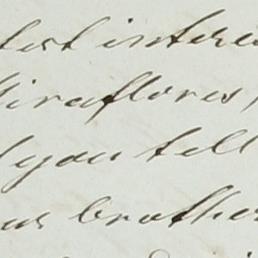 test intere
Miraflores,
you tell
us brother